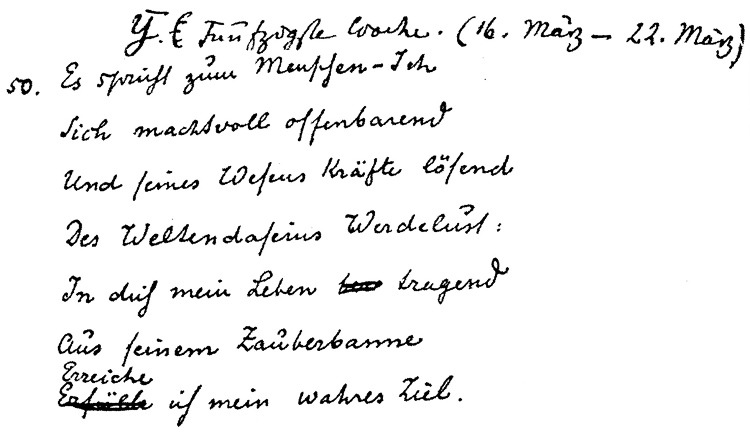 Y. E Fünfzigste Woche. (16. März – 22. März)
50. Es spricht zum Menschen-Ich
Sich machtvoll offenbarend
Und seines Wesens Kräfte lösend
Des Weltendaseins Werdelust:
In dich mein Leben tragend
Aus seinem Zauberbanne
Erreiche
Erfülle ich mein wahres Ziel.